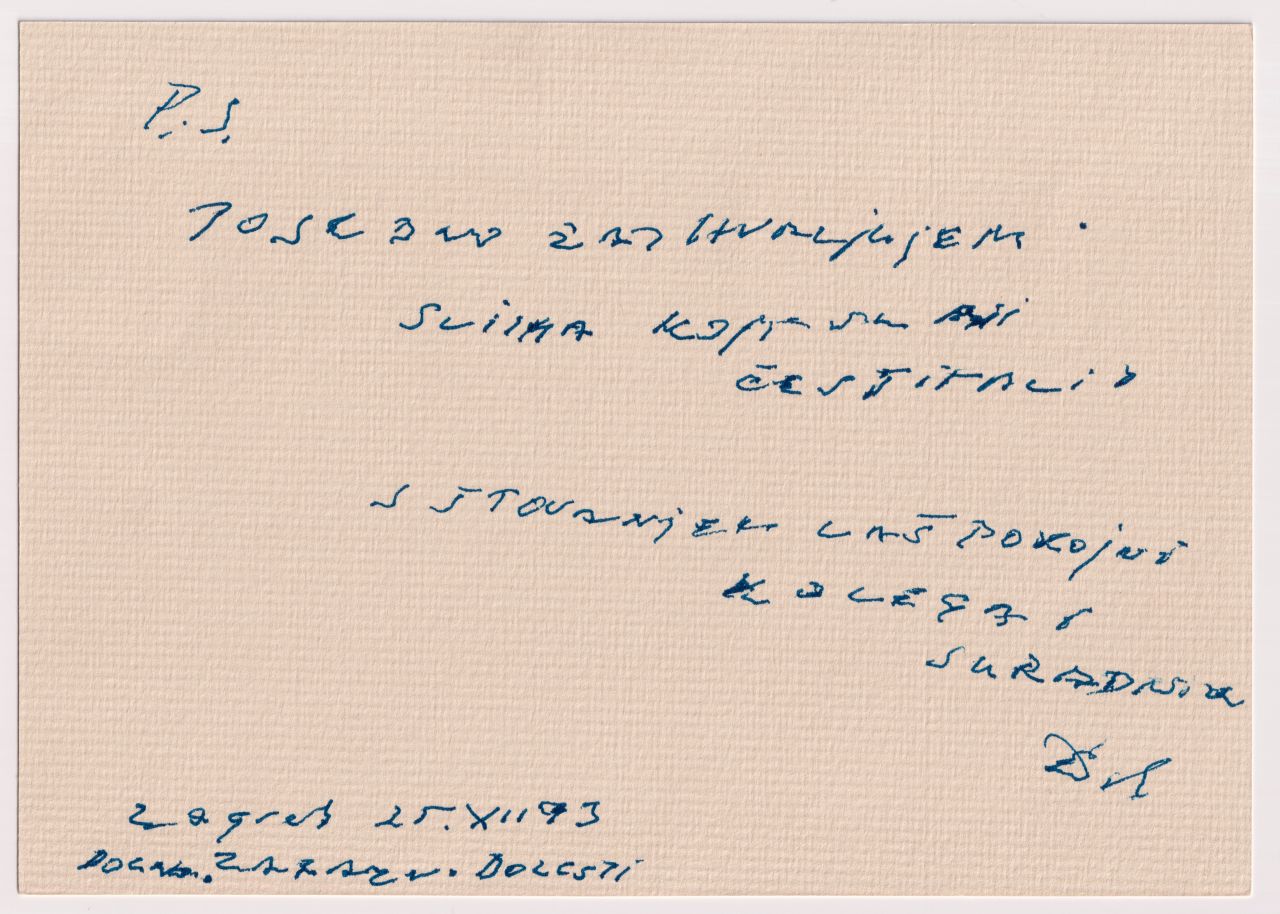 P.S.
POSEBNO ZAHVALJUJEM
SVIMA KOJI SU MI
ČESTITALI
S ŠTOVANJEM VAŠ POKOJNI
KOLEGA I
SURADNIK
Zagreb 25.XII 93
ZARAZN. BOLESTI